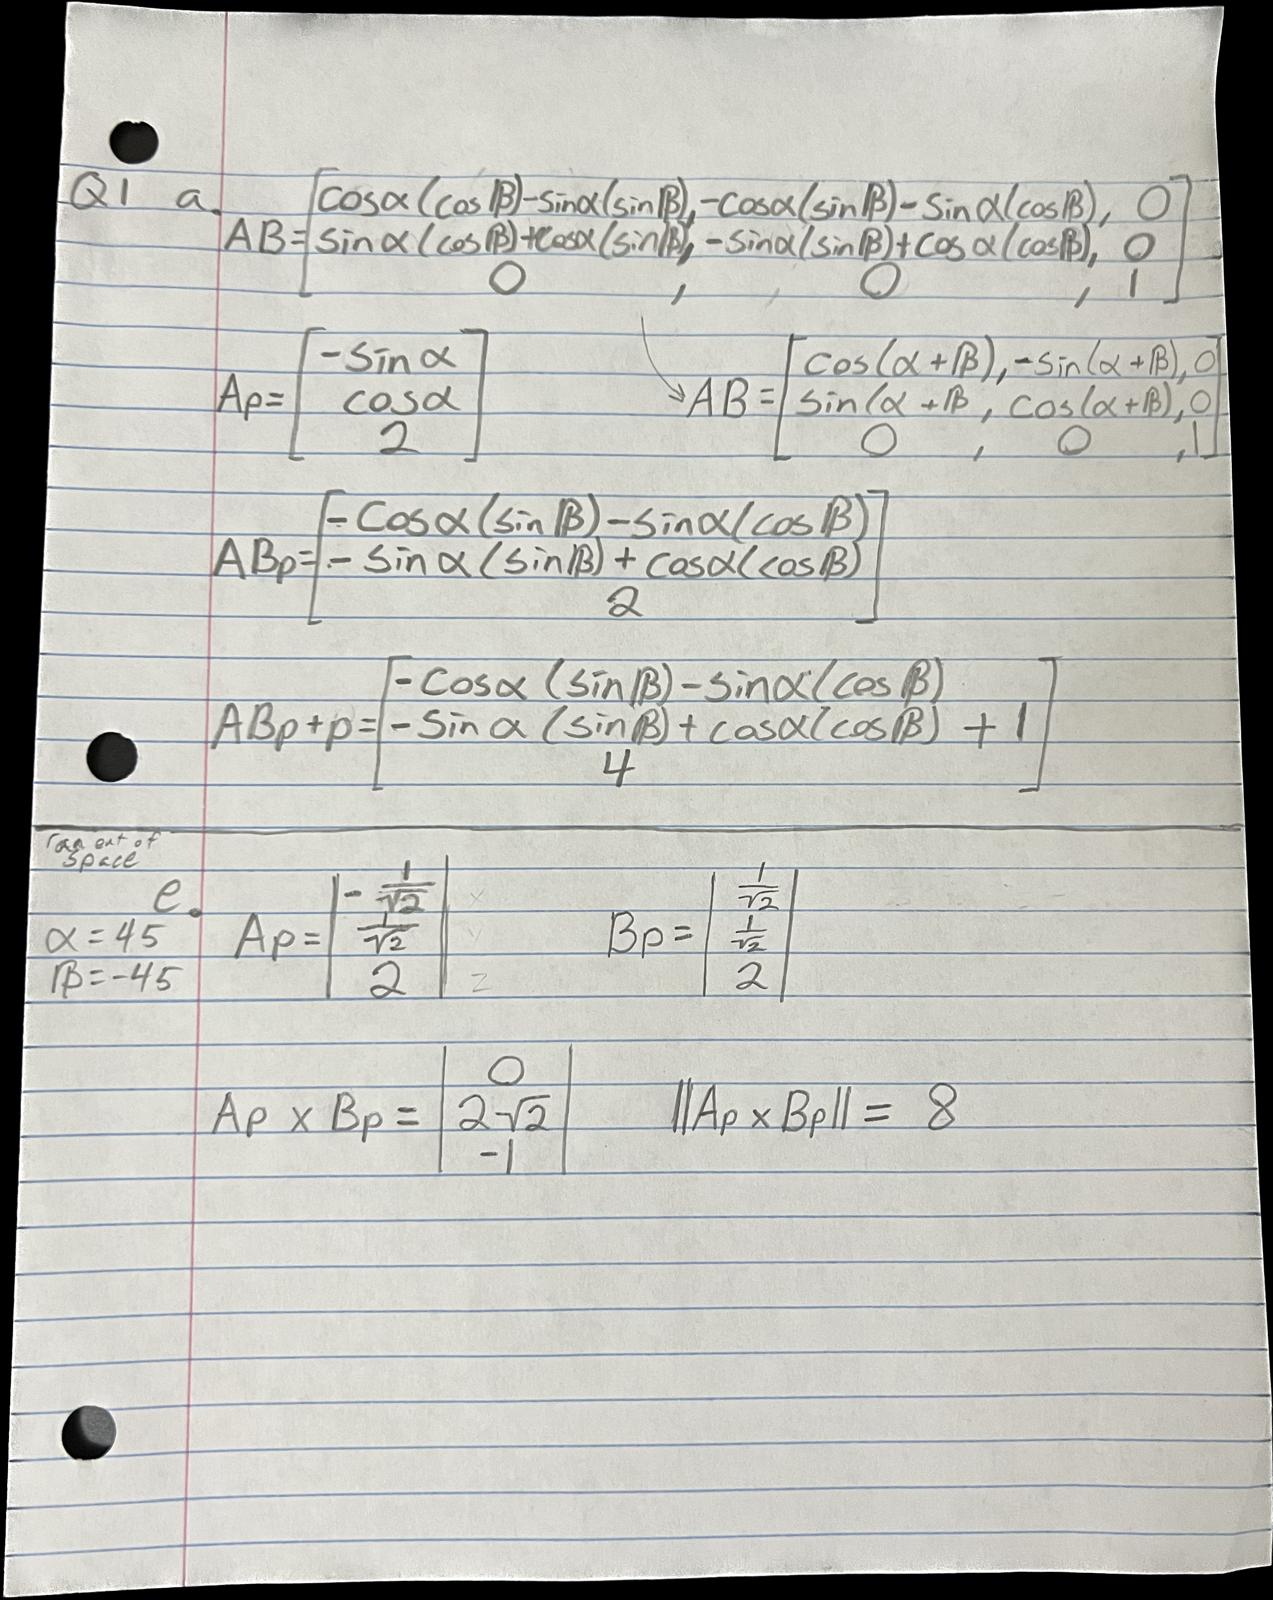 Q1 a.
AB = [cosα(cosβ)-sinα(sinβ), -cosα(sinβ)-sinα(cosβ), 0
sinα(cosβ)+cosα(sinβ), -sinα(sinβ)+cosα(cosβ), 0
0 , 0 , 1]
Ap = [-sinα
cosα
2]
→ AB = [cos(α+β), -sin(α+β), 0
sin(α+β , cos(α+β), 0
0 , 0 , 1]
ABp = [-cosα(sinβ)-sinα(cosβ)
-sinα(sinβ)+cosα(cosβ)
2]
ABp+p = [-cosα(sinβ)-sinα(cosβ)
-sinα(sinβ)+cosα(cosβ) + 1
4]
ran out of
space
e.
α = 45
β = -45
Ap = |-1/√2 x
1/√2 y
2| z
Bp = |1/√2
1/√2
2|
Ap x Bp = |0
2√2
-1|
||Ap x Bp|| = 8